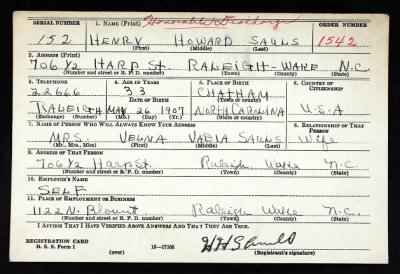 Honorable Discharge
SERIAL NUMBER 1. NAME (Print) ORDER NUMBER
152 HENRY HOWARD SAULS 1542
(First) (Middle) (Last)
2. ADDRESS (Print)
706 1/2 HARP ST. RALEIGH - WAKE N.C.
(Number and street or R. F. D. number) (Town) (County) (State)
3. TELEPHONE 4. AGE IN YEARS 5. PLACE OF BIRTH 6. COUNTRY OF CITIZENSHIP
22666 33 CHATHAM
DATE OF BIRTH (Town or county)
RALEIGH MAY 26 1907 NORTH CAROLINA U.S.A
(Exchange) (Number) (Mo.) (Day) (Yr.) (State or country)
7. NAME OF PERSON WHO WILL ALWAYS KNOW YOUR ADDRESS 8. RELATIONSHIP OF THAT PERSON
MRS. VELNA VADIA SAULS Wife
(Mr., Mrs., Miss) (First) (Middle) (Last)
9. ADDRESS OF THAT PERSON
706 1/2 Harp St. Raleigh Wake N.C.
(Number and street or R. F. D. number) (Town) (County) (State)
10. EMPLOYER'S NAME
SELF
11. PLACE OF EMPLOYMENT OR BUSINESS
1122 N. Blount Raleigh Wake N.C.
(Number and street or R. F. D. number) (Town) (County) (State)
I AFFIRM THAT I HAVE VERIFIED ABOVE ANSWERS AND THAT THEY ARE TRUE.
REGISTRATION CARD
D. S. S. Form 1 16-17105 H H Sauls
(over) (Registrant's signature)